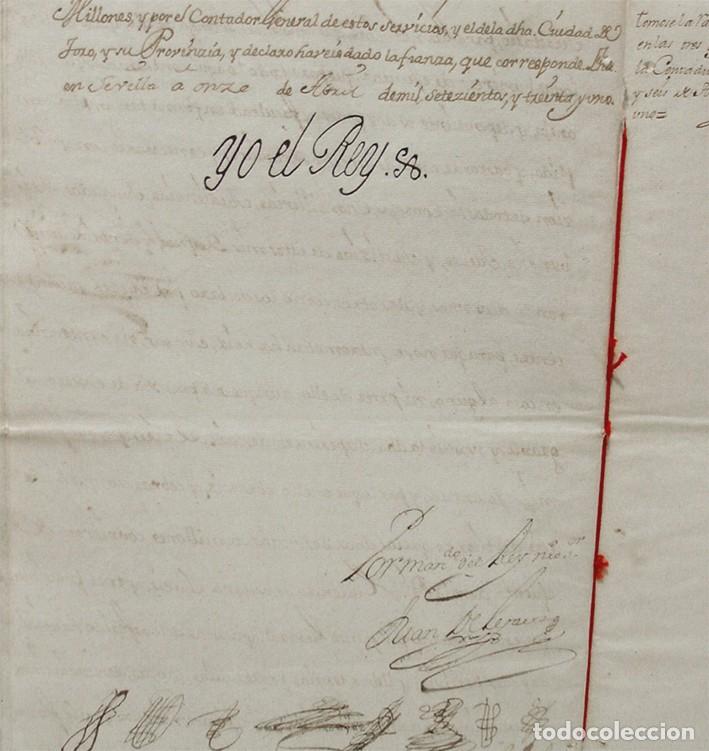 Millones, y por el Contador General de estos servicios, y el de la dha. Ciudad de
Toro, y su Provinzia, y declaro haveis dado la fianza, que corresponde. Fha
en Sevilla a onze de Abril de mil, setezientos, y treinta y uno.
Yo el Rey.
Por mando. del Rey nro. sor
Juan de
Tomose la
en las tres
la Contadu
y seis de
uno=
todocoleccion